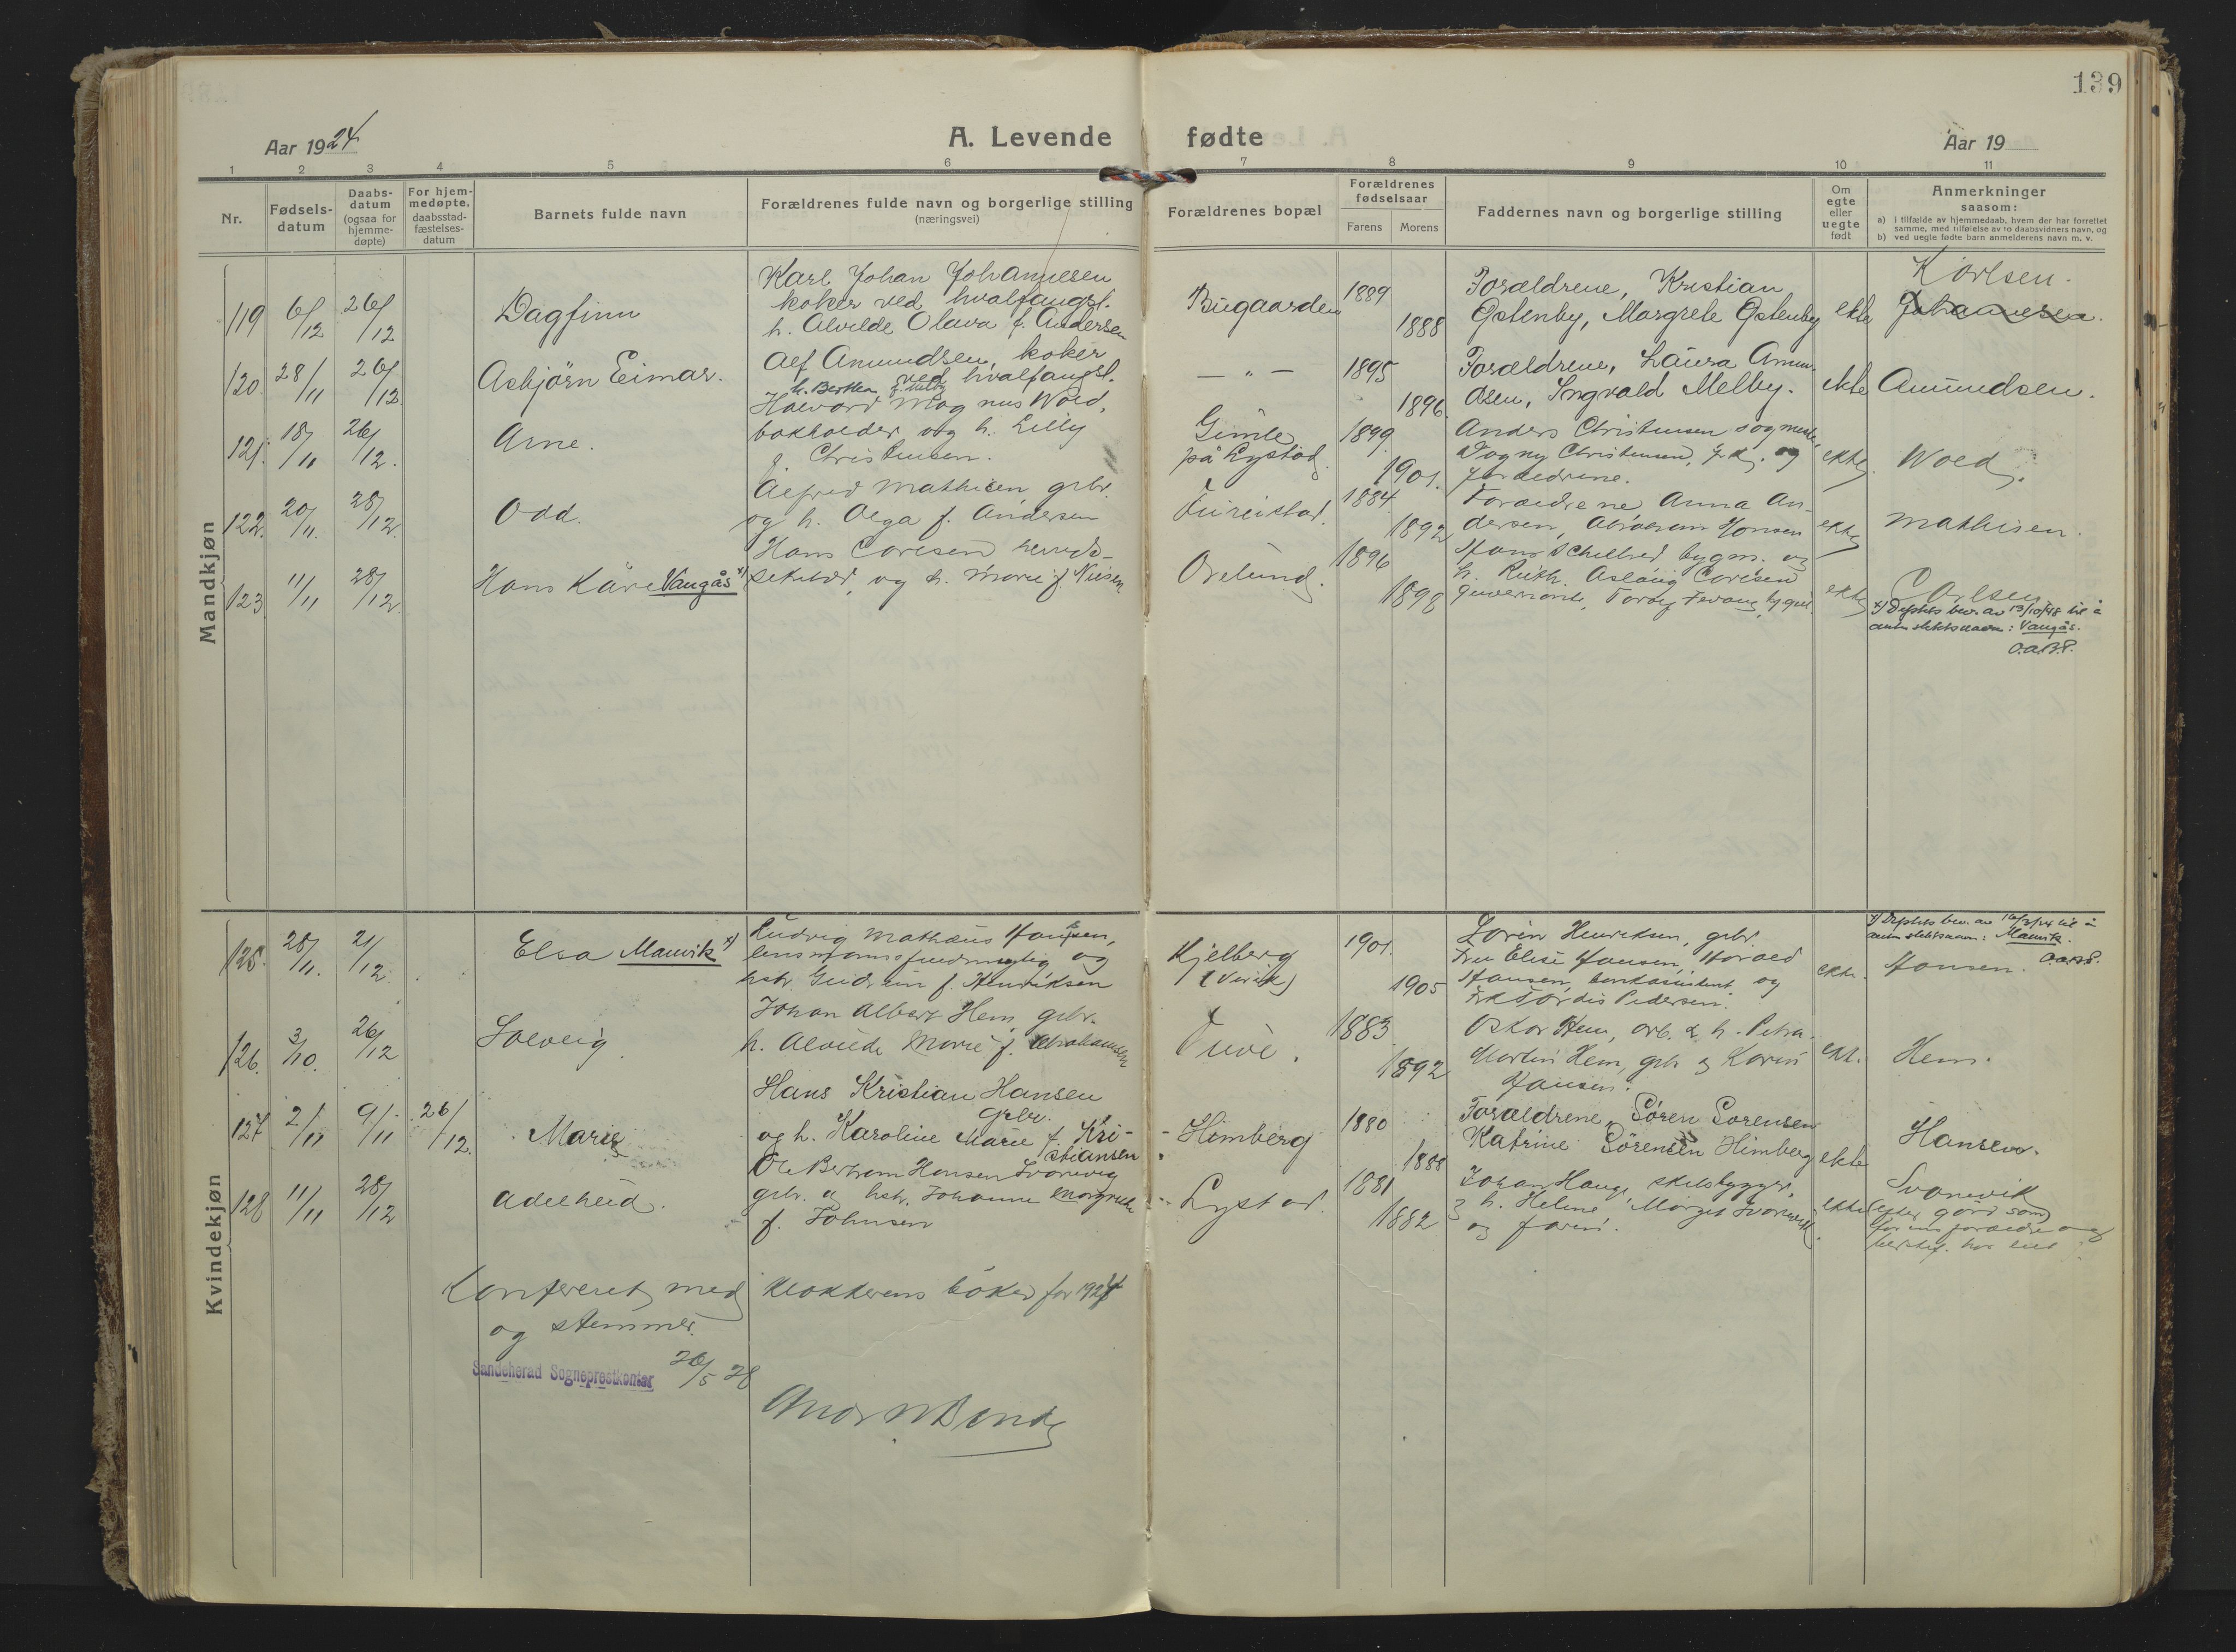 139
Aar 1924
A. Levende fødte
Aar 19
1 2 3 4 5 6 7 8 9 10 11
Nr.
Fødsels-
datum
Daabs-
datum
(ogsaa for
hjemme-
døpte)
For hjem-
medøpte,
daabsstad-
fæstelses-
datum
Barnets fulde navn
Forældrenes fulde navn og borgerlige stilling
(næringsvei)
Forældrenes bopæl
Forældrenes
fødselsaar
Farens Morens
Faddernes navn og borgerlige stilling
Om
egte
eller
uegte
født
Anmerkninger
saasom:
a) i tilfælde av hjemmedaab, hvem der har forrettet
samme, med tilføielse av to daabsvidners navn, og
b) ved uegte fødte barn anmelderens navn m. v.
Mandkjøn
119 6/12 26/12
Dagfinn
Karl Johan Johannesen
koker ved hvalfangst.
h. Alvilde Olava f. Andersen
Bugaarden
1889
1888
Forældrene, Kristian
Østenby, Margrete Østenby
ekte
Karlsen.
Johannesen.
120. 28/11 26/12
Asbjörn Eimar.
Alf Amundsen, koker
ved hvalfangst.
h. Berthea f. Melby
— " —
1895
1896.
Forældrene, Laura Amun-
dsen, Ingvald Melby.
ekte
Amundsen.
121. 18/11 26/12.
Arne.
Halvard Magnus Wold,
bokholder og h. Lilly
f. Christensen.
Gimle
på Lystad
1899.
1901.
Anders Christensen
Dagny Christensen, og
foreldrene.
ekte
Wold.
122. 20/11. 28/12.
Odd.
Alfred Mathisen grbr.
og h. Olga f. Andersen
1884.
1892
Foreldrene Anna An-
dersen, Abraham Hansen
ekte
Mathisen.
123 11/11 28/12.
Hans Kåre Vangås x)
Hans Carlsen herreds-
sekretær, og h. Marie f. Nilsen
Orelund.
1896
1898
Hans Schelbred bygm. og
h. Ruth. Aslaug Carlsen
guvernante,
ekte
Carlsen
x) Depttets bev. av 13/10/48 til å
anta slektsnavn: Vangås.
O.a.B.P.
Kvindekjøn
125. 28/11. 21/12.
Elsa Mauvik x)
Ludvig Mathæus Hansen,
lensmannsfuldmegtig og
hstr. Gudrun f. Henriksen
Kjelberg
(Virik)
1901.
1905
Sörin Henriksen, grbr.
Fru Elise Hansen, Harald
Hansen, bankassistent og
Frk Tordis Pedersen.
ekte.
Hansen.
x) Depttets bev. av til å
anta slektsnavn: Mauvik.
O.a.B.P.
126. 3/10. 26/12
Solveig.
Johan Albert Hem, grbr.
h. Alvilde Marie f. Abrahamsen
1883.
1892
Oskar Hem, arb. & h. Petra.
Martin Hem, grbr og Karin
Hansen.
ekt.
Hem.
127 2/11 9/11 26/12.
Marie
Hans Kristian Hansen
Grbr.
og h. Karoline Marie f. Kri-
stiansen
Himberg
1880
1888
Forældrene, Søren Sørensen
Katrine Sørensen Himberg
ekte
Hansen.
128 11/11 28/12
Adelheid.
Ole Bertram Hansen Svanevig
grbr. og hstr. Johanne Margrethe
f. Johnsen
Lystad.
1881
1882
Johan Hauge, skibsbygger,
og h. Helene, Margit Svanevik
og faren.
ekte
Svanevik
(efter gård som
forældre og
har eiet
Konferert med klokkerens böker for 1924
og stemmer.
Sandeherad Sogneprestkontor 26/5 28